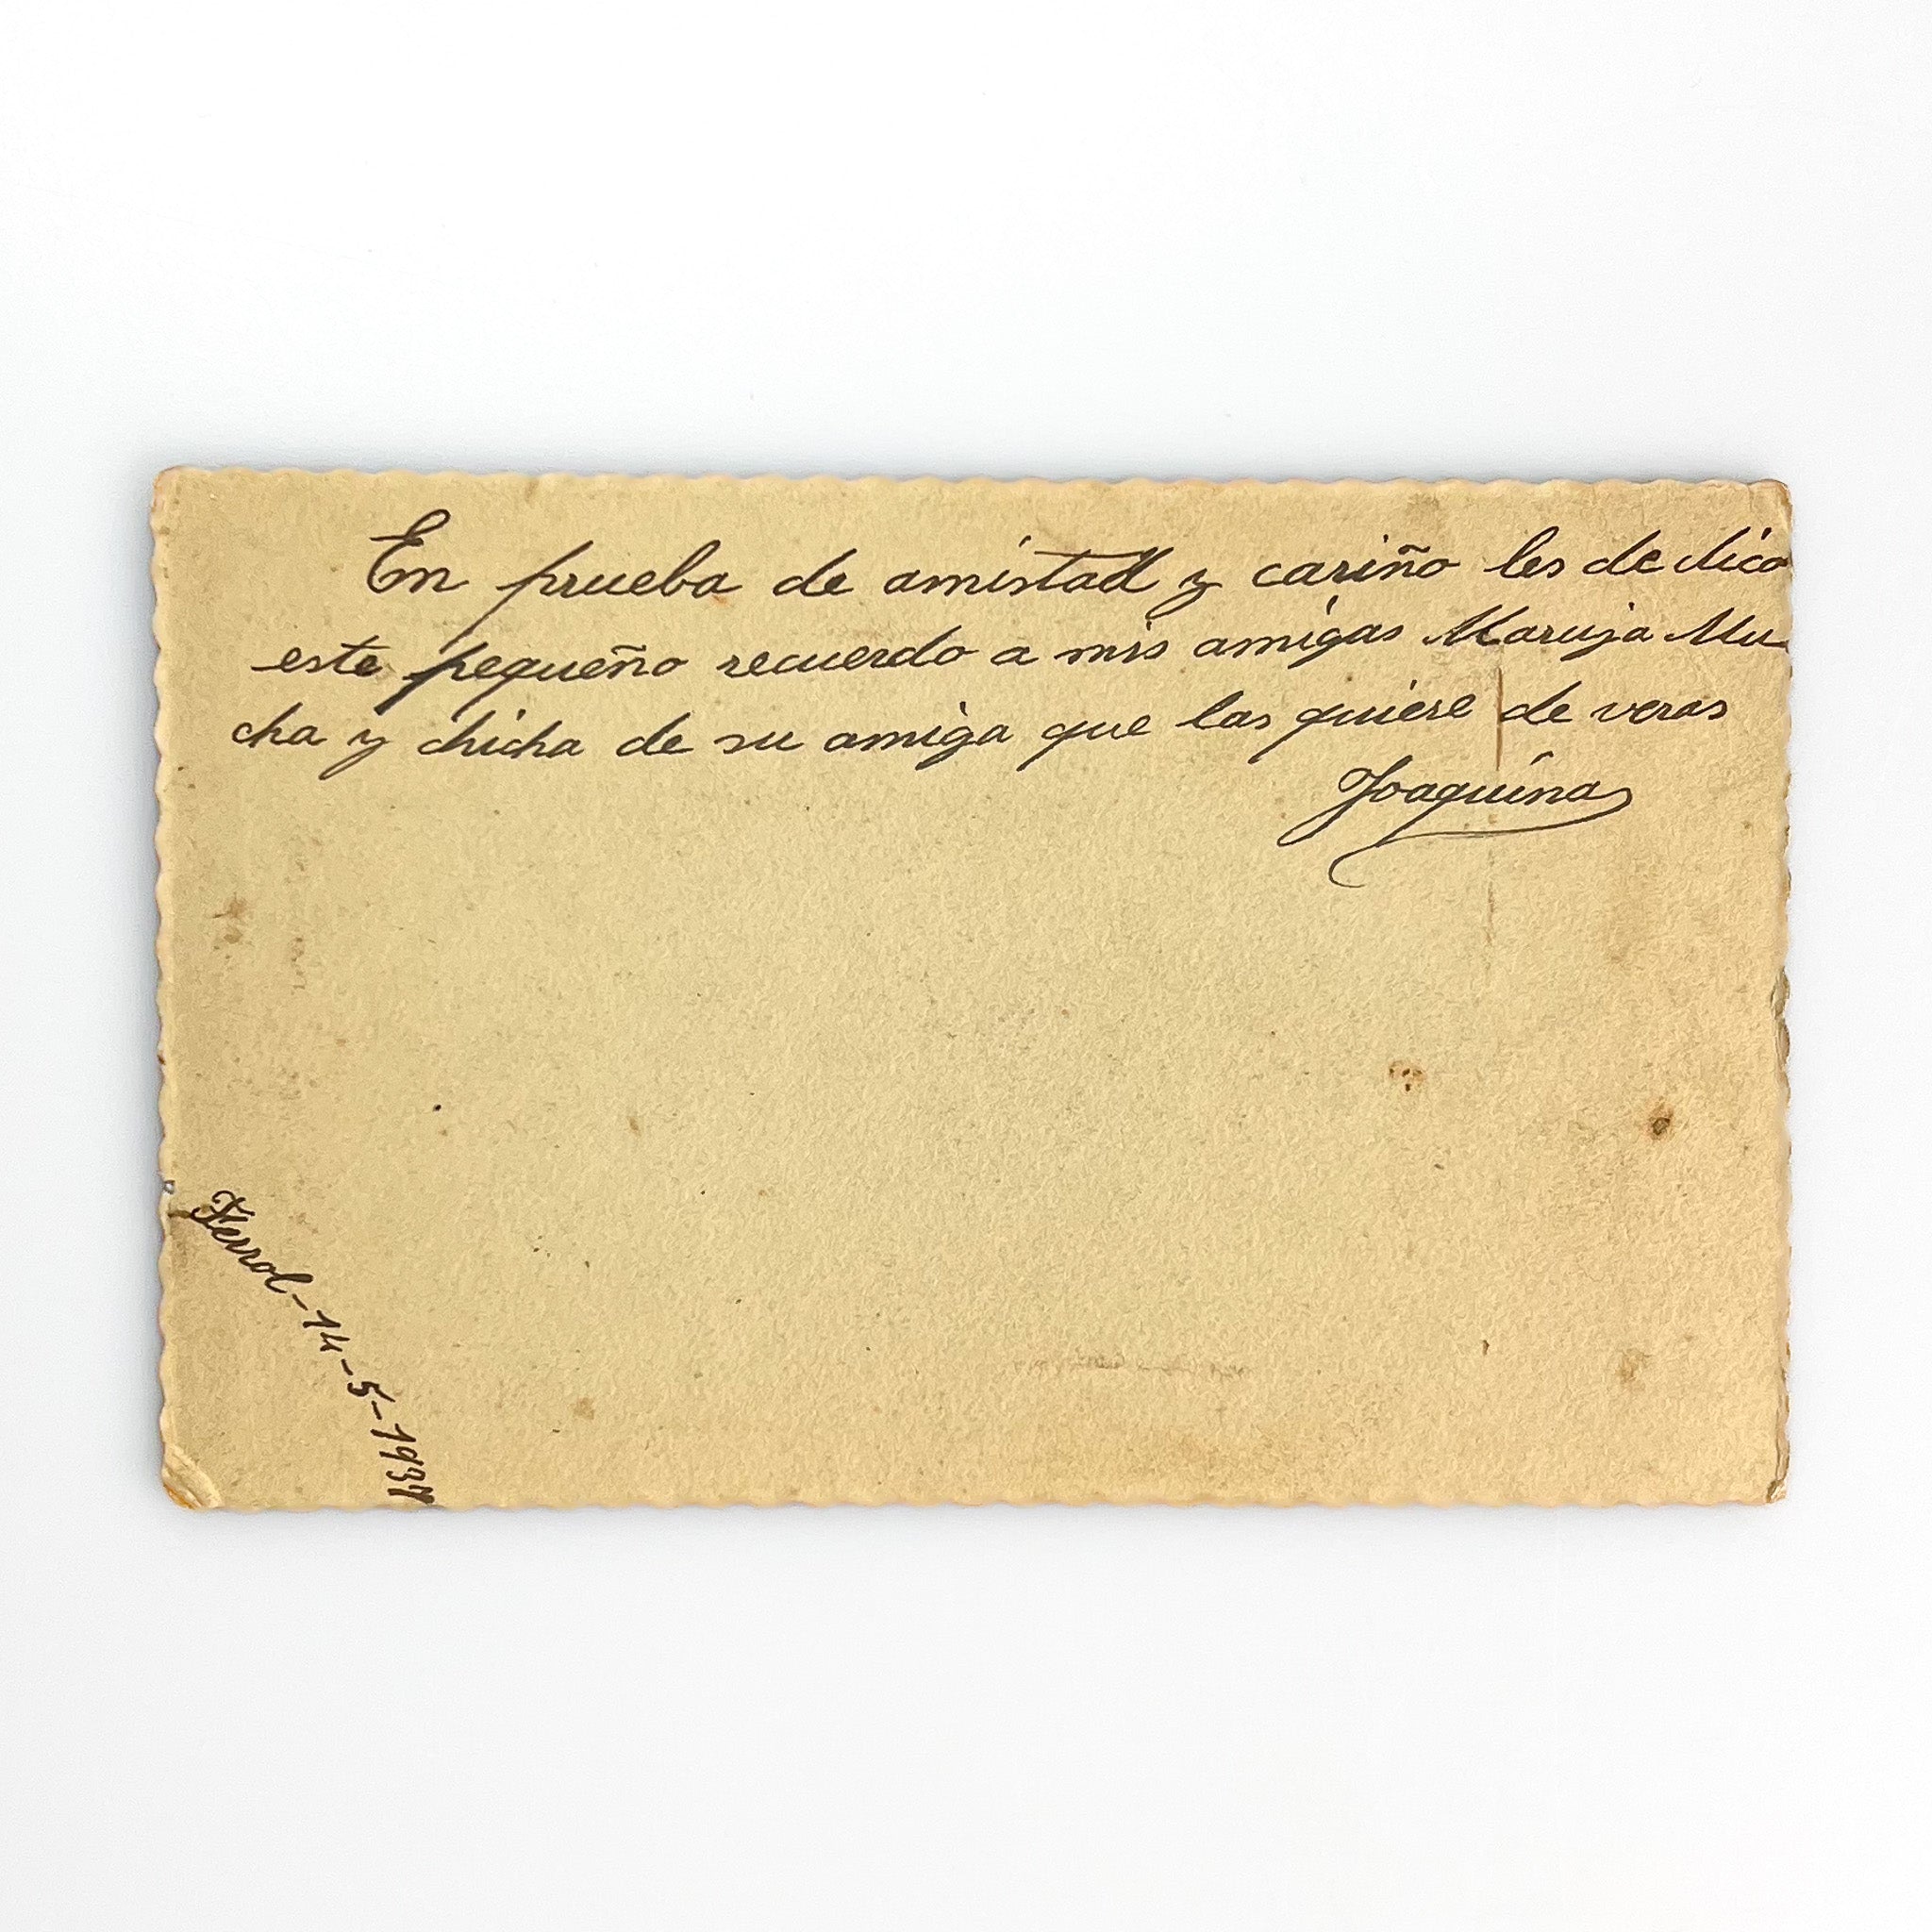 En prueba de amistad y cariño les dedico
este pequeño recuerdo a mis amigas Maruja Mu-
cha y chicha de su amiga que las quiere de veras
Joaquina
Ferrol-14-5-1937